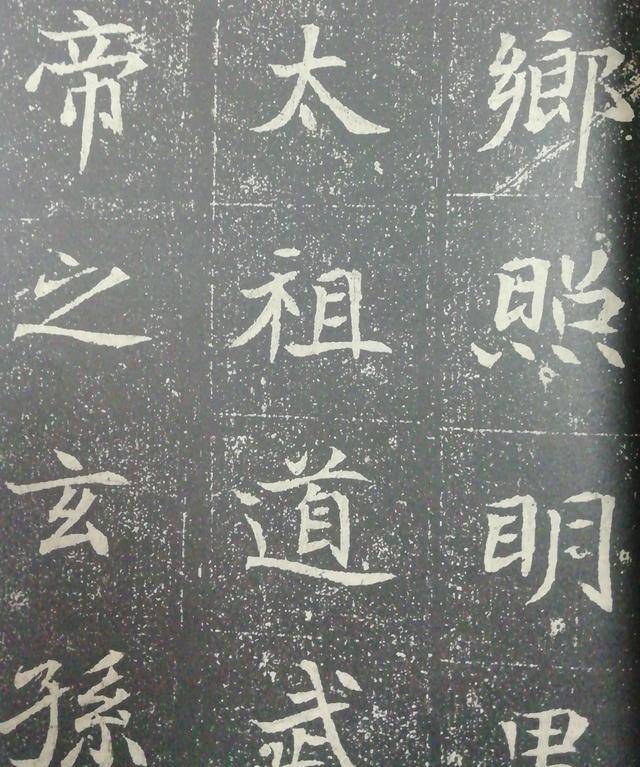 鄉照明里
太祖道武
帝之玄孫